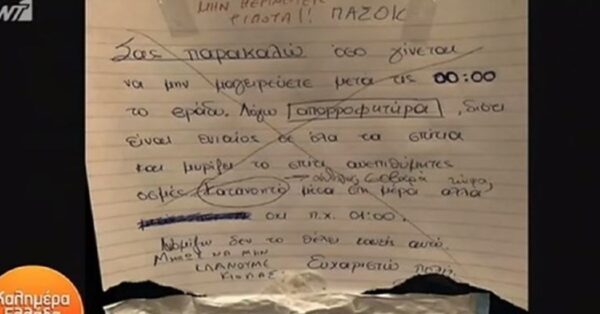 ΑΝΤ1
ΜΗΝ ΠΕΡΙΜΕΝΕΤΕ
ΤΙΠΟΤΑ!! ΠΑΣΟΚ
Σας παρακαλώ όσο γίνεται
να μην μαγειρεύετε μετα τις 00:00
το βράδυ. Λόγω απορροφητύρα, διότι
είναι ενιαίος σε όλα τα σπίτια
και μυρίζει το σπίτι ανεπιθύμητες
οσμές. Κατανοητό μέσα στη μέρα αλλά
όχι π.χ. 01:00.
Νομίζω δεν το θέλει κανείς αυτό.
ΜΗΠΩΣ ΝΑ ΜΗΝ
ΚΛΑΝΟΥΜΕ
ΚΙΟΛΑΣ
Ευχαριστώ πολύ.
Καλημέρα
Ελλάδα